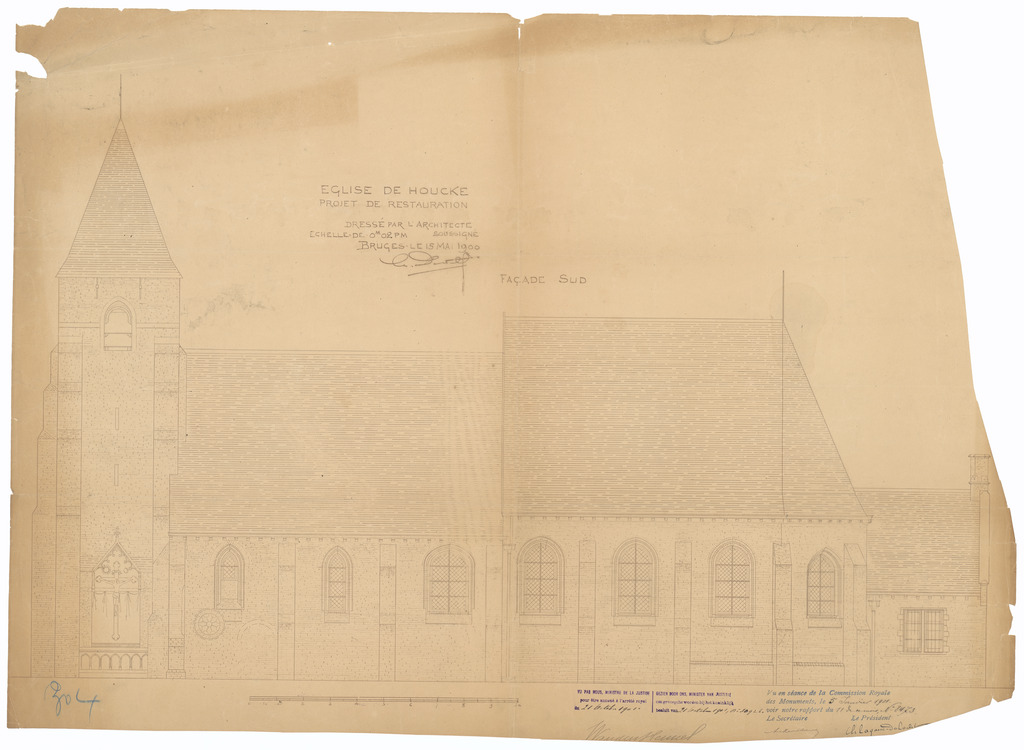 EGLISE DE HOUCKE
PROJET DE RESTAURATION
DRESSÉ PAR L'ARCHITECTE
SOUSSIGNÉ
ECHELLE DE 0M02 PM
BRUGES LE 15 MAI 1900
FAÇADE SUD
304
VU PAR NOUS, MINISTRE DE LA JUSTICE
pour être annexé à l'arrêté royal
du
GEZIEN DOOR ONS, MINISTER VAN JUSTITIE
om gevoegd te worden bij het koninklijk
besluit van
Vu en séance de la Commission Royale
des Monuments, le 5
voir notre rapport du
Le Secrétaire Le Président